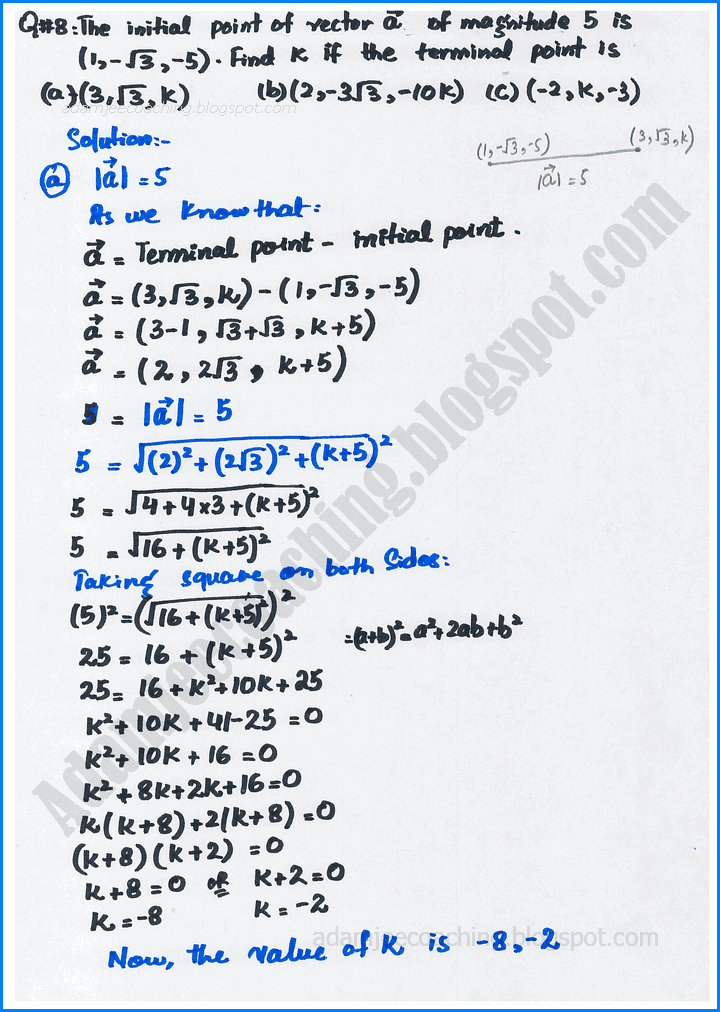 Q#8: The initial point of vector a⃗ of magnitude 5 is
(1, -√3, -5). Find K if the terminal point is
(a) (3, √3, K) (b) (2, -3√3, -10K) (c) (-2, K, -3)
adamjeecoaching.blogspot.com
Solution:-
(1, -√3, -5) (3, √3, K)
|a⃗| = 5
(a) |a⃗| = 5
As we know that:
a⃗ = Terminal point - initial point.
a⃗ = (3, √3, K) - (1, -√3, -5)
a⃗ = (3-1, √3+√3, K+5)
a⃗ = (2, 2√3, K+5)
5 = |a⃗| = 5
5 = √(2)² + (2√3)² + (K+5)²
5 = √4 + 4×3 + (K+5)²
5 = √16 + (K+5)²
Taking square on both Sides:
(5)² = (√16 + (K+5)²)²
25 = 16 + (K+5)² =(a+b)² = a² + 2ab + b²
25 = 16 + K² + 10K + 25
K² + 10K + 41 - 25 = 0
K² + 10K + 16 = 0
K² + 8K + 2K + 16 = 0
K(K+8) + 2(K+8) = 0
(K+8) (K+2) = 0
K+8 = 0 or K+2 = 0
K = -8 K = -2
adamjeecoaching.blogspot.com
Now, the value of K is -8, -2
Adamjeecoaching.blogspot.com